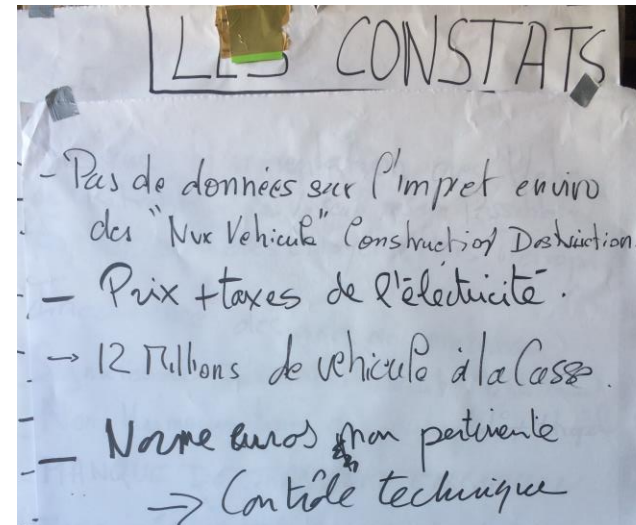 LES CONSTATS
- Pas de données sur l'impret enviro
des "Nvx Vehicule" Construction Destruction.
- Prix + taxes de l'électricité.
→ 12 Millions de vehicule à la Casse.
- Norme euros non pertinente
→ Contrôle technique